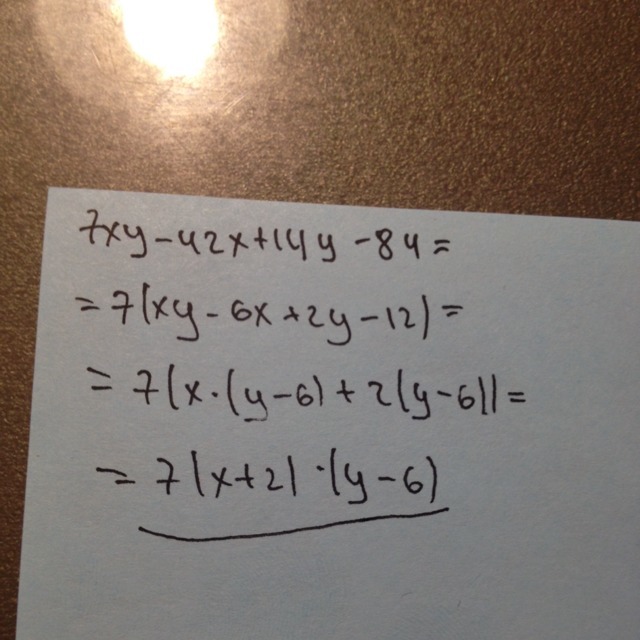 7xy-42x+14y-84=
=7(xy-6x+2y-12)=
=7(x·(y-6)+2(y-6))=
=7(x+2)·(y-6)